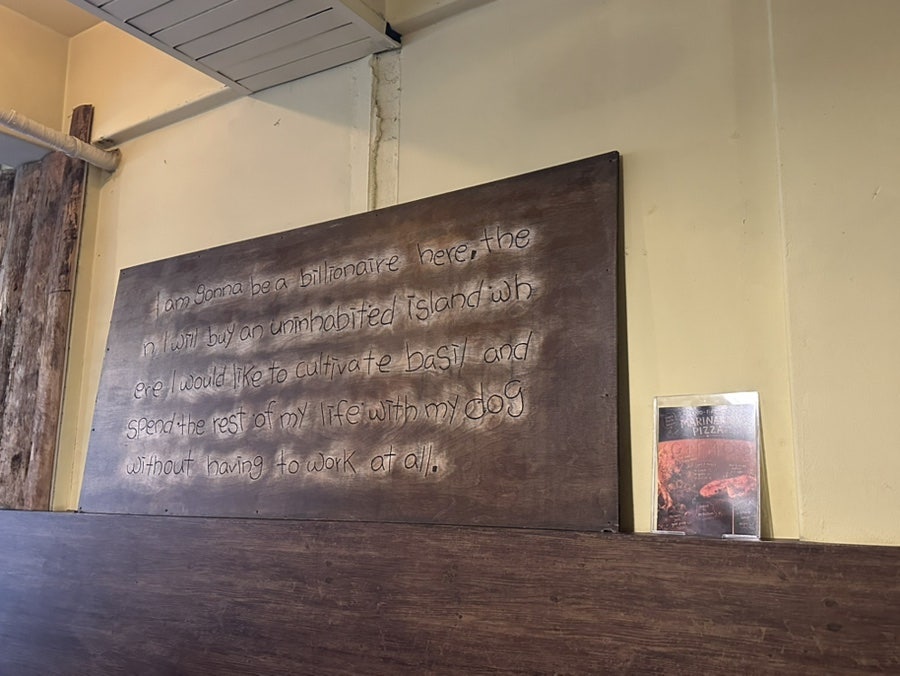 I am gonna be a billionaire here, the
n, I will buy an uninhabited island wh
ere I would like to cultivate basil and
spend the rest of my life with my dog
without having to work at all.
MARINARA
PIZZA